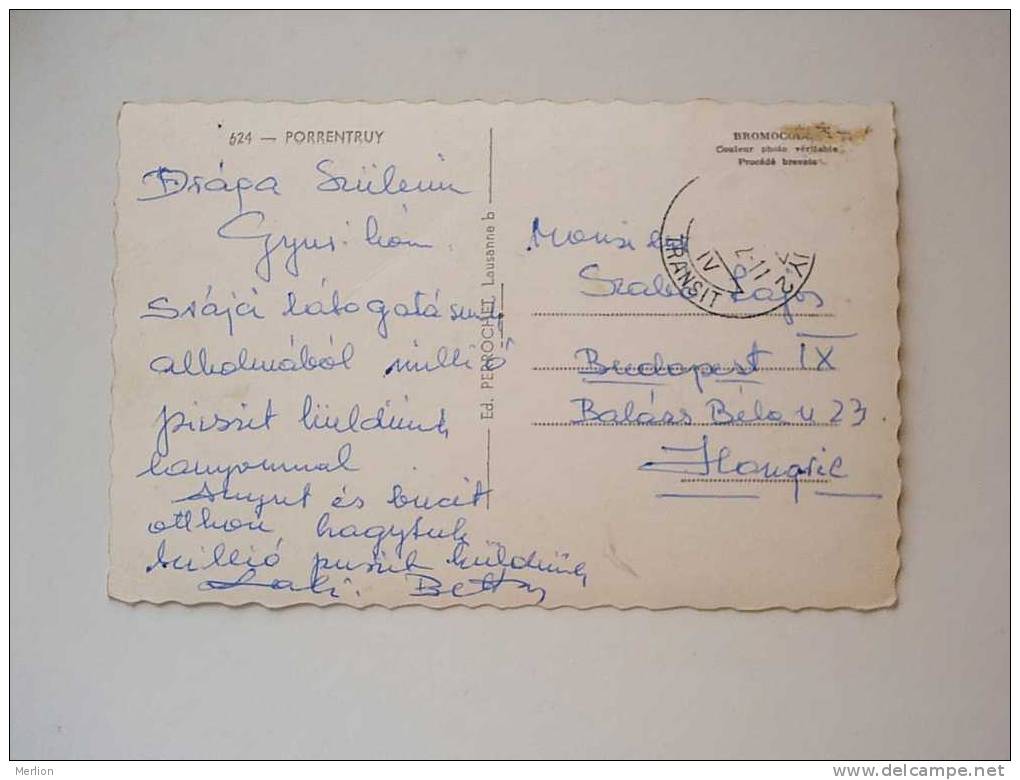 624 — PORRENTRUY
Drága Szüleim
Gyuri kám.
Svájci látogatásunk
alkalmából millió
puszit küldünk
lányommal
Anyut és bucit
otthon hagytuk
millió puszit küldünk
Laki. Betty
Ed. PERROCHET, Lausanne b
BROMOCOL
Couleur photo véritable
Procédé breveté
TRANSIT
IV
Szabó Lajos
Budapest IX
Balázs Béla u 23.
Hongrie
Merlion
delcampe.net